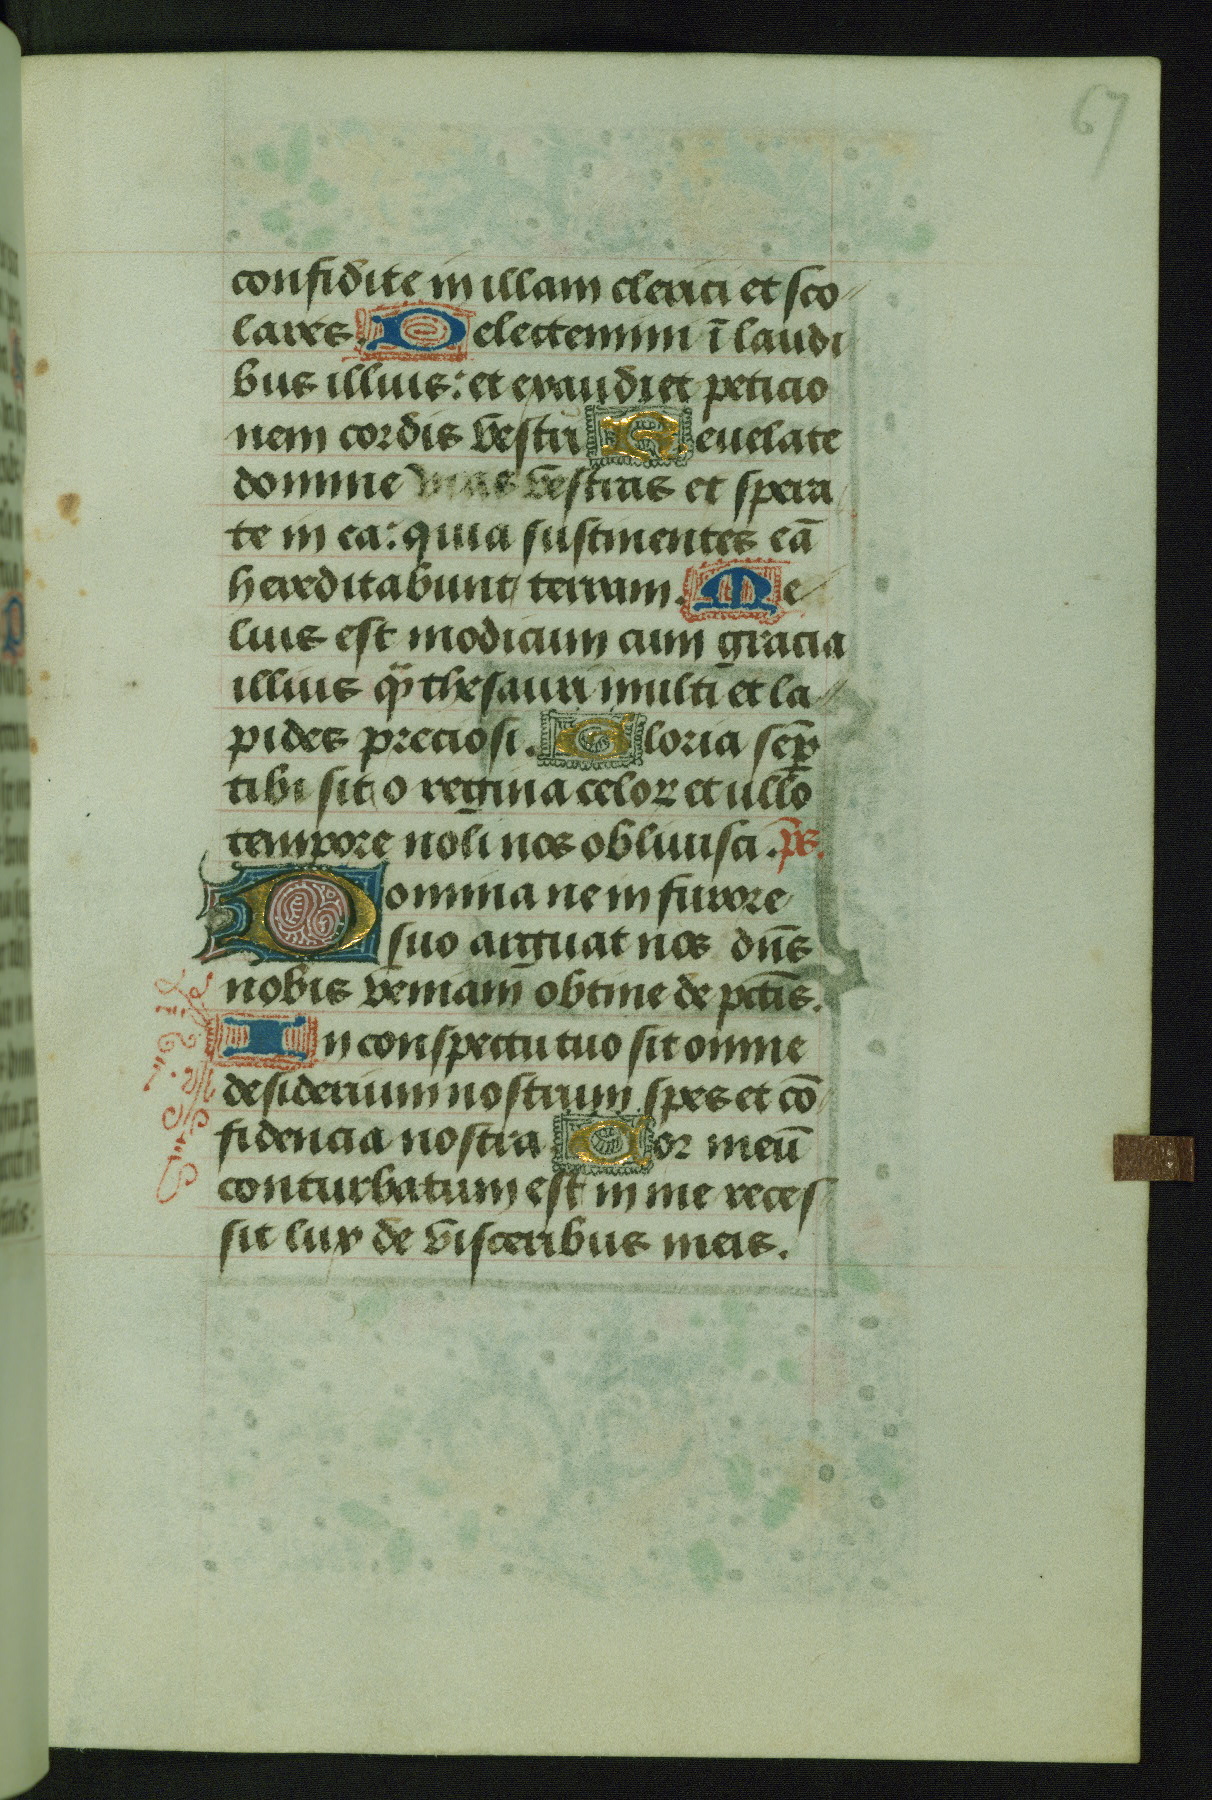 67
confidite in illam clerici et sco
lares. Delectemini ī laudi
bus illius: et exaudiet peticio
nem cordis vestri Reuelate
domine vias vestras et spera
te in ea: quia sustinentes eā
hereditabunt terram. Me
lius est modicum cum gracia
illius qᷓ thesauri multi et la
pides preciosi. Gloria semꝑ
tibi sit o regina celoꝝ et ullo
tempore noli nos obliuisci. p̄s.
Domina ne in furore
suo arguat nos dn̄s
nobis veniam obtine de pctīs.
In conspectu tuo sit omne
desiderium nostrum spes et cō
fidencia nostra Cor meū
conturbatum est in me reces
sit lux de visceribus meis.